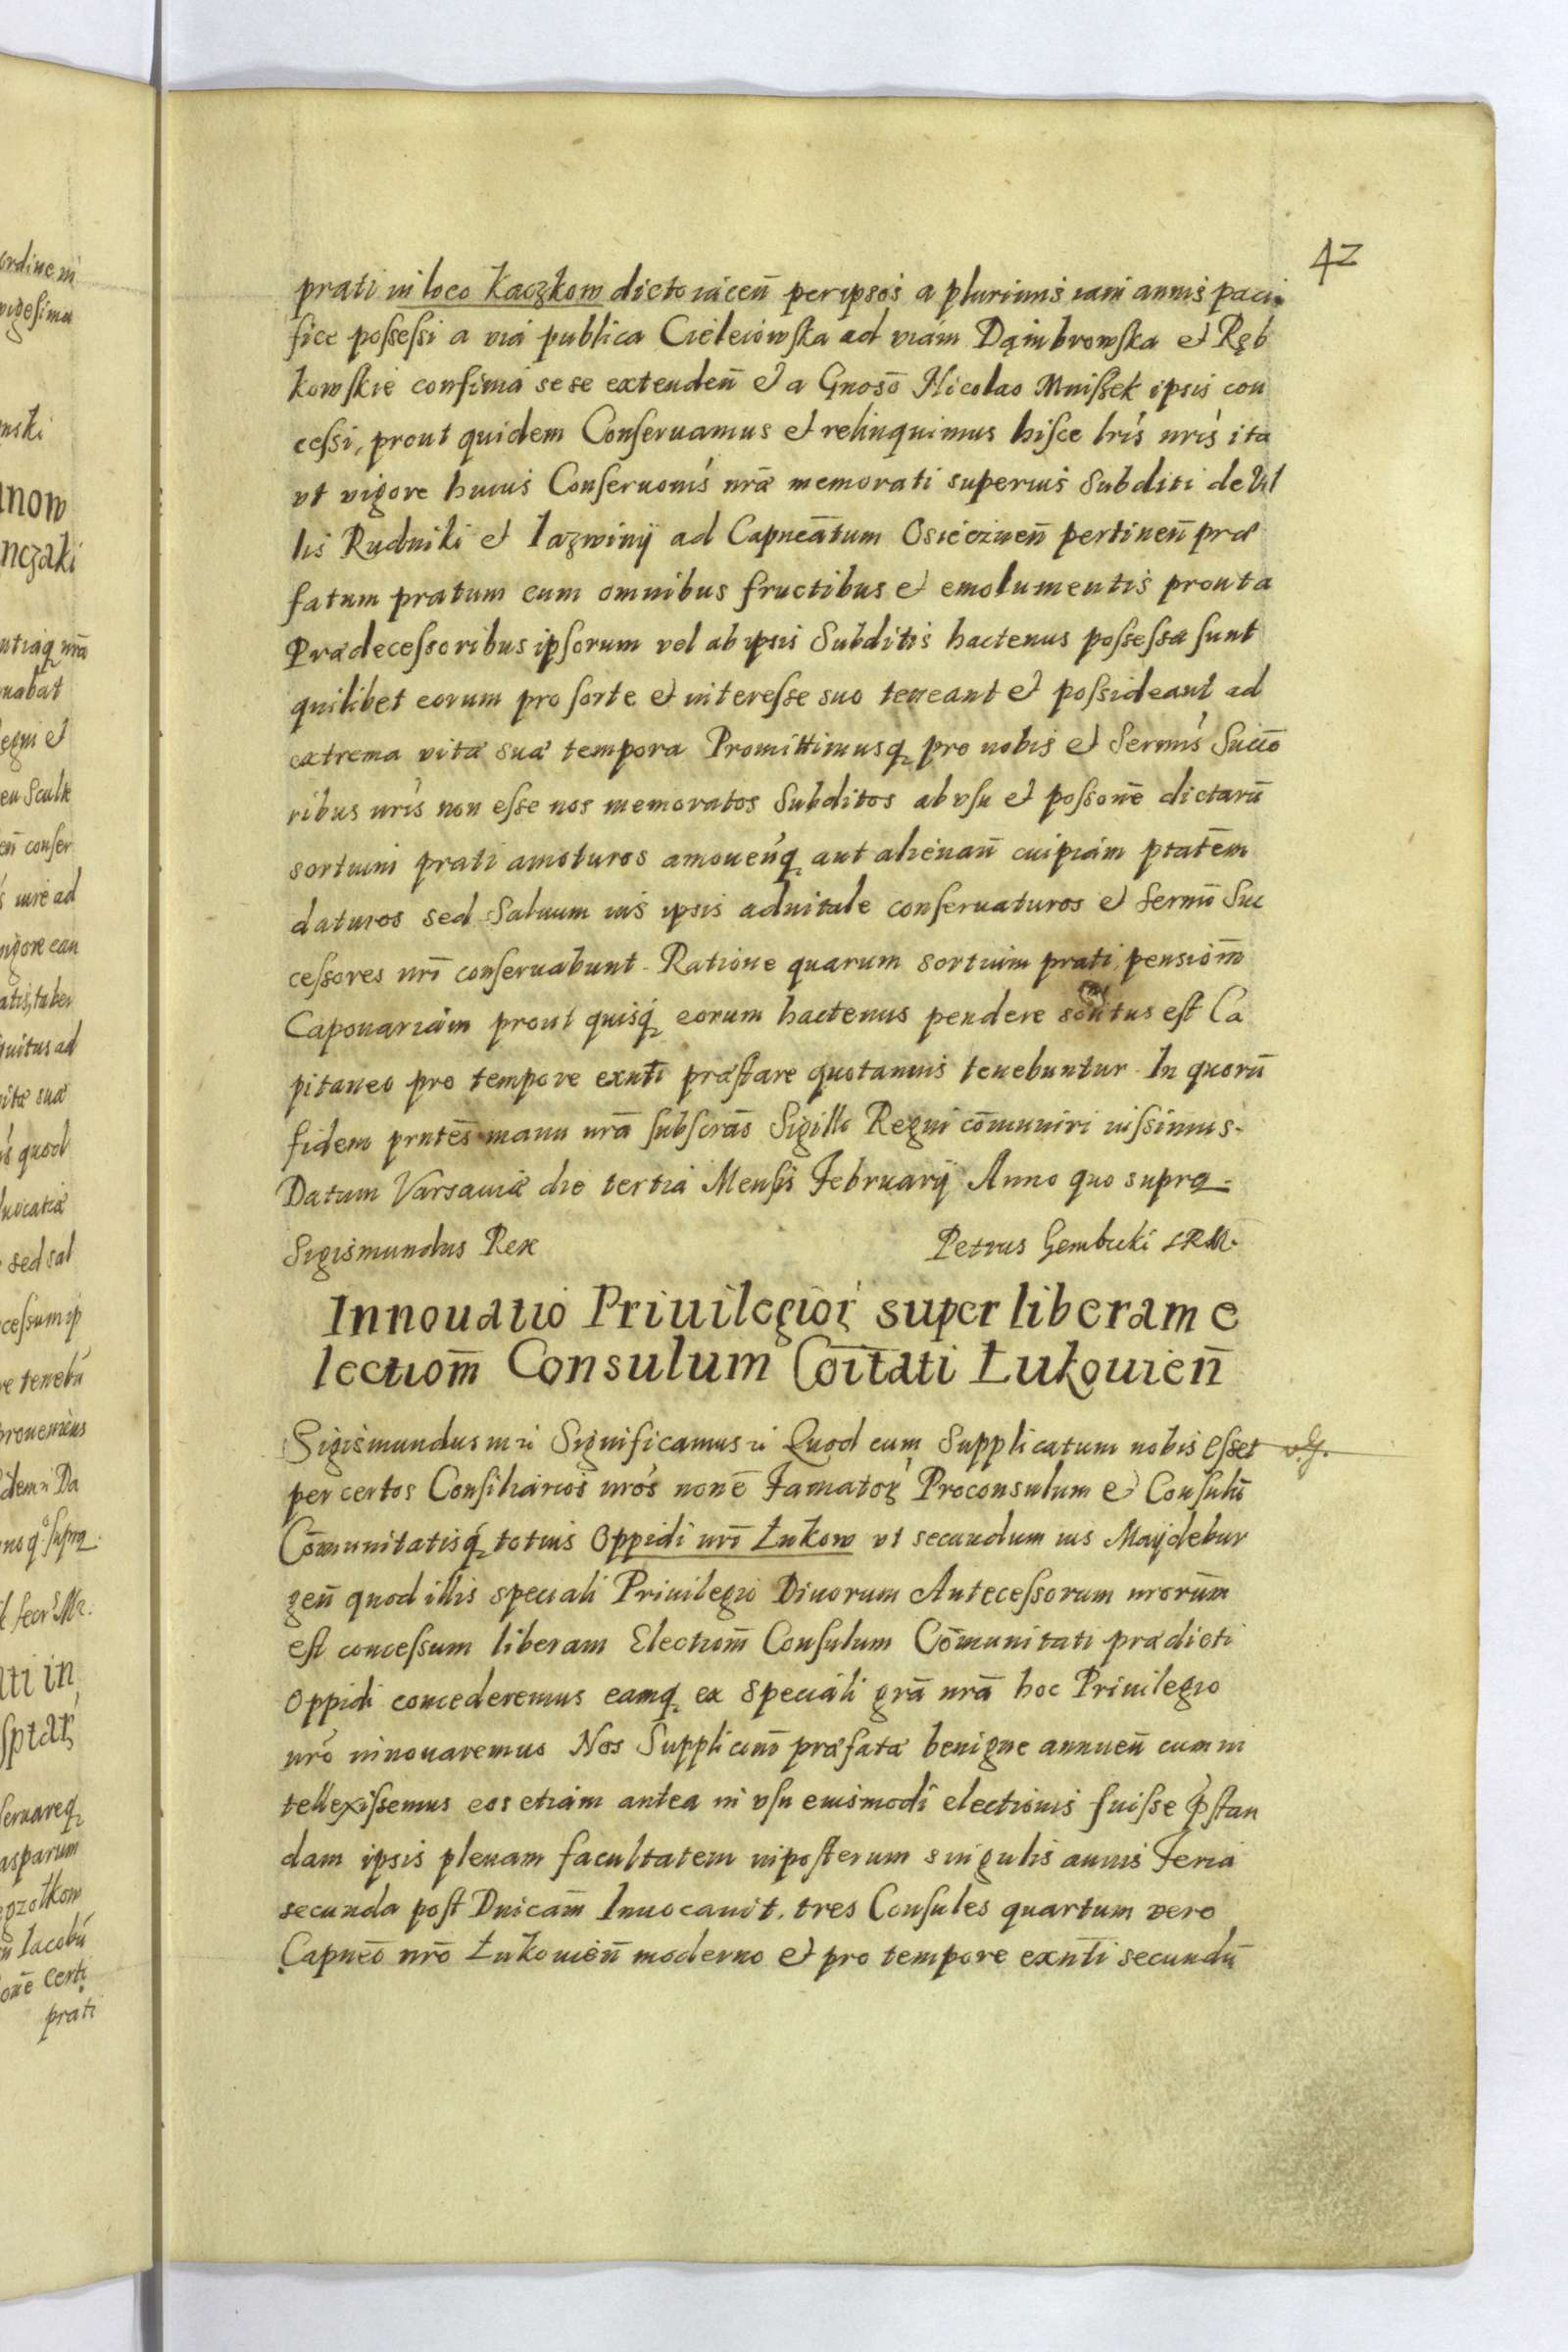 42
prati in loco Kaczkow dicto iaceñ per ipsos a plurimis iam annis paci
fice possessi a via publica Cieleiowska ad viam Dąmbrowska et Ręb
kowskie confinia sese extendeñ et a Gnoso Nicolao Mnissek ipsis con
cessi, prout quidem Conseruamus et relinquimus hisce lris nris ita
vt vigore huius Conseruonis nrã memorati superius Subditi de Vil
lis Rudniki et Iazwiny ad Capneãtum Osieczneñ pertineñ præ
fatum pratum cum omnibus fructibus et emolumentis prout a
Prædecessoribus ipsorum vel ab ipsis Subditis hactenus possessa sunt
quilibet eorum pro sorte et interesse suo teneant et possideant ad
extrema vitæ suæ tempora Promittimusq pro nobis et Sermis Succõ
ribus nris non esse nos memoratos Subditos ab vsu et possone dictarũ
sortium prati amoturos amouenq aut alienañ cuipiam ptatẽm
daturos sed Saluum ius ipsis aduitale conseruaturos et Sermi Suc
cessores nri conseruabunt. Ratione quarum sortium prati pensiom̃
Caponariam prout quisq eorum hactenus pendere solitus est Ca
pitaneo pro tempore exnti præstare quotannis tenebuntur. In quorũ
fidem pntes manu nrã subscras Sigillo Regni cõmuniri iussimus.
Datum Varsauiæ die tertia Mensis February Anno quo supra
Sigismundus Rex Petrus Gembicki SRM.
Innouatio Priuilegior super liberam e
lectiom̃ Consulum Coitati Łukouieñ
Sigismundus Significamus Quod cum Supplicatum nobis esset
per certos Consiliarios nros noñe Famator Proconsulum et Consulũ
Cõmunitatisq totius Oppidi nri Łukow vt secundum ius Maydebur
geñ quod illis speciali Priuilegio Diuorum Antecessorum nrorum
est concessum liberam Electiom̃ Consulum Cõmunitati prædicti
Oppidi concederemus eamq ex speciali grã nrã hoc Priuilegio
nrõ innouaremus Nos Supplicõni præfatæ benigne annueñ cum in
tellexissemus eos etiam antea in vsu eiusmodi electionis fuisse p̃stan
dam ipsis plenam facultatem inposterum singulis annis Feria
secunda post Dnicam̃ Inuocauit. tres Consules quartum vero
Capneõ nrõ Łukouieñ moderno et pro tempore exnti secundũ